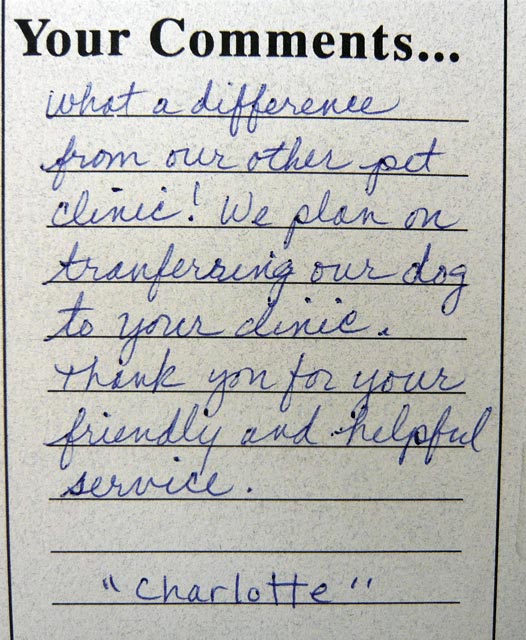 Your Comments...
What a difference
from our other pet
clinic! We plan on
tranferring our dog
to your clinic.
Thank you for your
friendly and helpful
service.
"Charlotte"